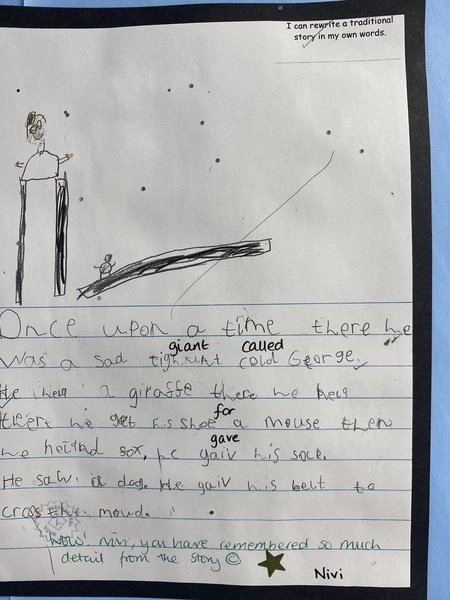 I can rewrite a traditional
story in my own words.
Once upon a time there he
giant called
was a sad cold George.
He a giraffe there he
for
he get his shoe a mouse then
gave
he sox, he gaiv his sock.
He saw a dog. He gaiv his belt to
cross the moud.
Wow! Nivi, you have remembered so much
detail from the story
Nivi